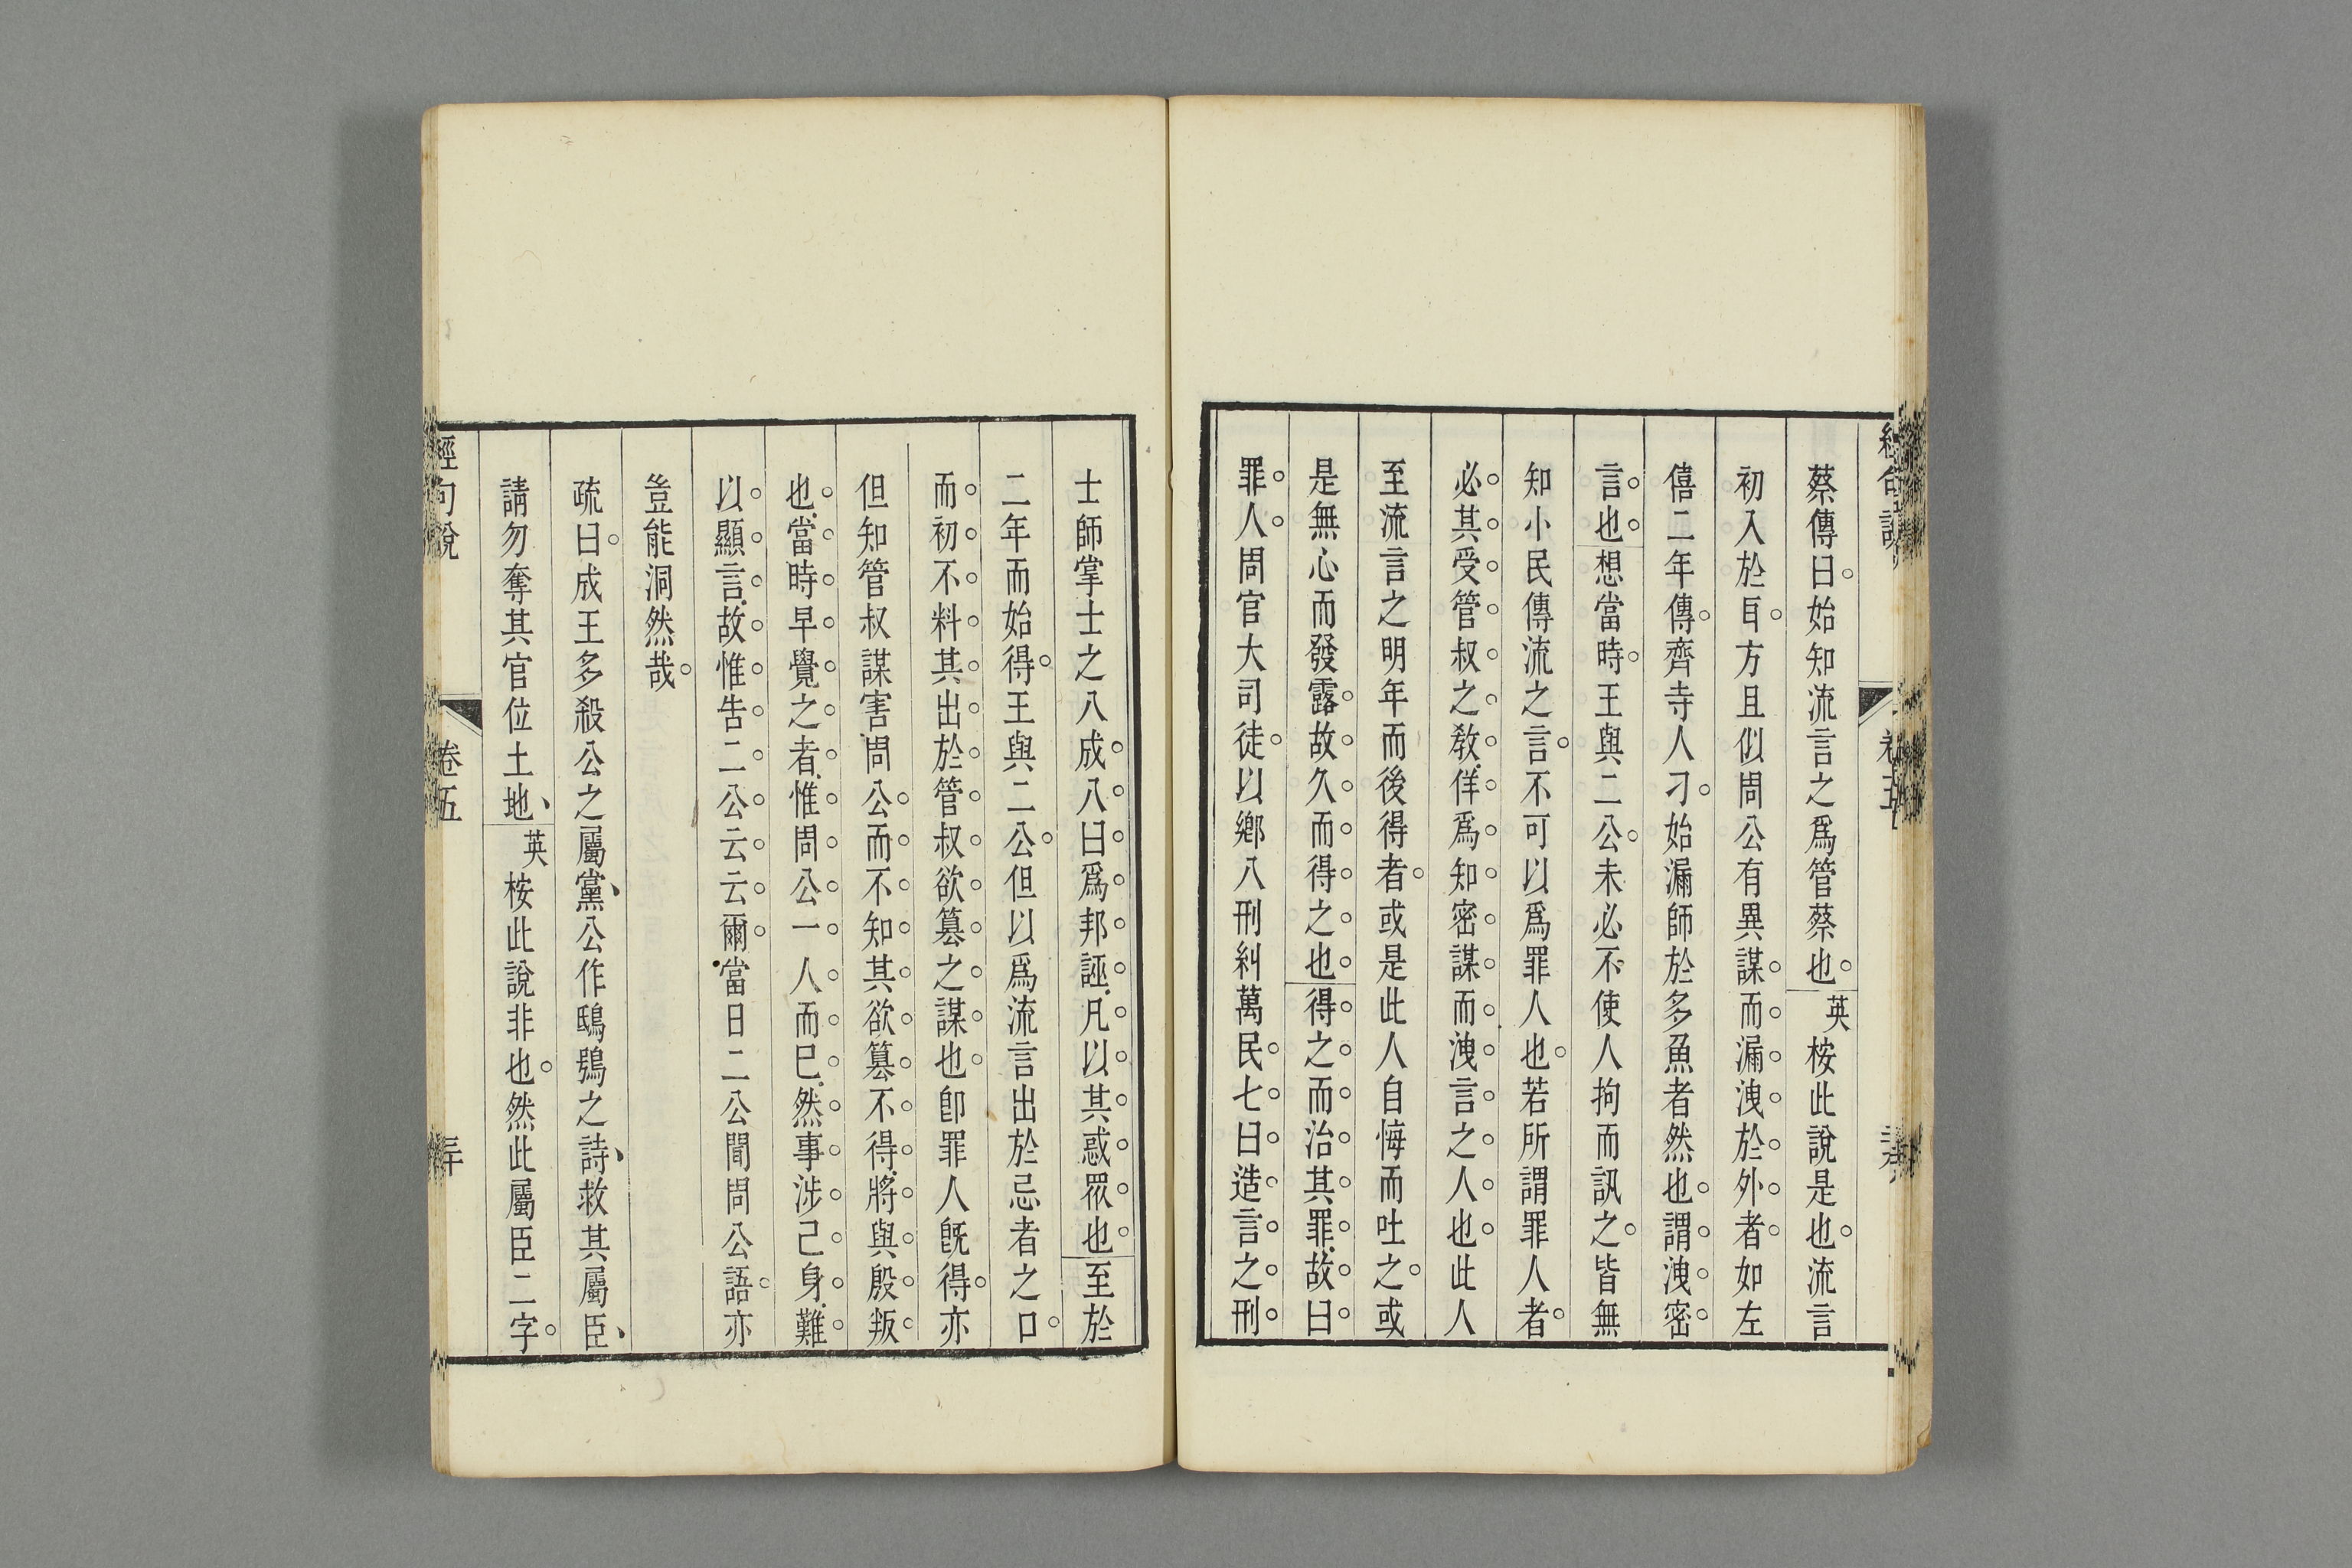 蔡傳曰始知流言之爲管蔡也英桉此說是也流言
初入於耳方且似周公有異謀而漏洩於外者如左
僖二年傳齊寺人刁始漏師於多魚者然也謂洩密
言也想當時王與二公未必不使人拘而訊之皆無
知小民傳流之言不可以爲罪人也若所謂罪人者
必其受管叔之敎佯爲知密謀而洩言之人也此人
至流言之明年而後得者或是此人自悔而吐之或
是無心而發露故久而得之也得之而治其罪故曰
罪人周官大司徒以鄉八刑糾萬民七曰造言之刑
士師掌士之八成八曰爲邦誣凡以其惑眾也至於
二年而始得王與二公但以爲流言出於忌者之口
而初不料其出於管叔欲簒之謀也卽罪人旣得亦
但知管叔謀害周公而不知其欲簒不得將與殷叛
也當時早覺之者惟周公一人而已然事涉己身難
以顯言故惟告二公云云爾當日二公聞周公語亦
豈能洞然哉
疏曰成王多殺公之屬黨公作鴟鴞之詩救其屬臣
請勿奪其官位土地英桉此說非也然此屬臣二字
經句說 卷五